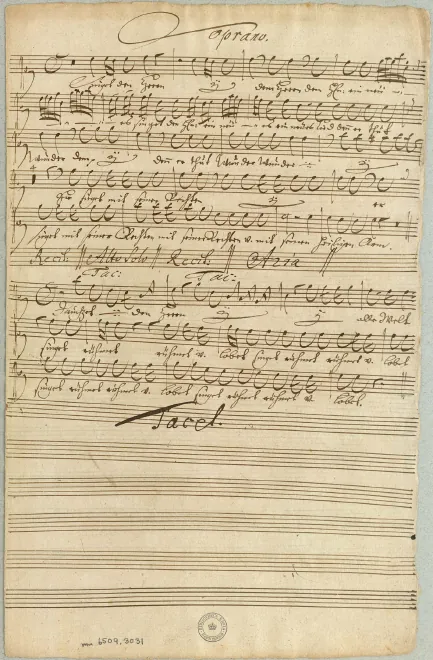 Soprano.
Singet dem Herrn dem Herrn ein neü
ein neües lied denn er thut
wunder denn er thut wunder wunder
Er sieget mit seiner Rechten er
sieget mit seiner Rechten mit seiner Rechten v. mit seinem heiligen Arm.
Recit: Alto Solo Recit: Aria
Tac: Tac:
Jauchzet dem Herrn alle Welt
Singet rühmet rühmet v. lobet singet rühmet rühmet v. lobet
Singet rühmet rühmet v. lobet singet rühmet rühmet v. lobet.
Tacet.
6509, 3031